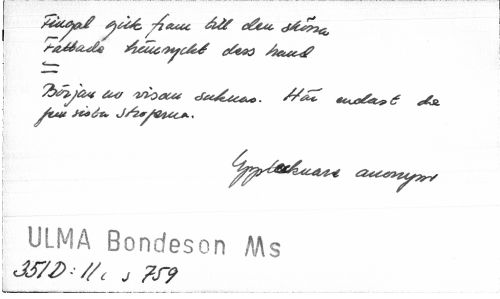 Fingal gick fram till den sköna
Fattade hänryckt dess hand
=
Början av visan saknas. Här endast de
fem sista stroferna.
Upptecknare anonym
ULMA Bondeson Ms
351D: 11 c s 759